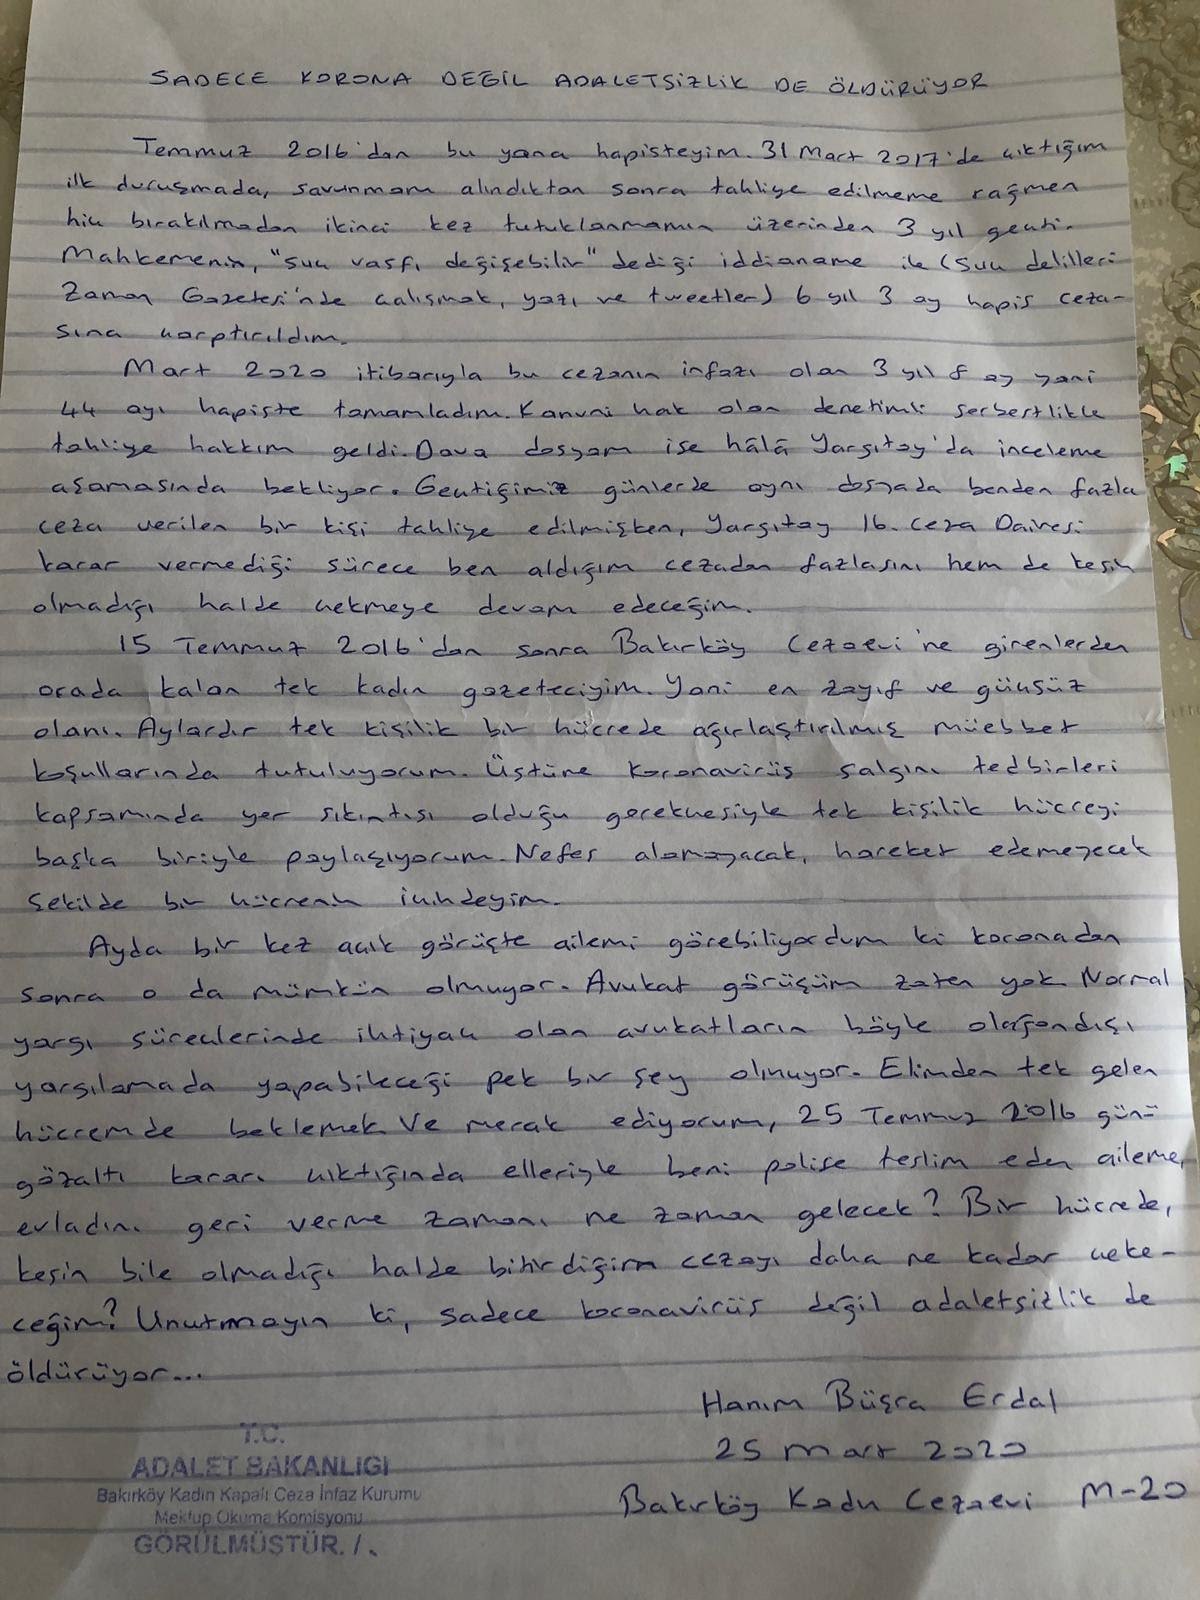 SADECE KORONA DEĞİL ADALETSİZLİK DE ÖLDÜRÜYOR
Temmuz 2016'dan bu yana hapisteyim. 31 Mart 2017'de çıktığım
ilk duruşmada, savunmam alındıktan sonra tahliye edilmeme rağmen
hiç bırakılmadan ikinci kez tutuklanmamın üzerinden 3 yıl geçti.
Mahkemenin, "suç vasfı değişebilir" dediği iddianame ile (Suç delilleri
Zaman Gazetesi'nde çalışmak, yazı ve tweetler) 6 yıl 3 ay hapis ceza-
sına çarptırıldım.
Mart 2020 itibarıyla bu cezanın infazı olan 3 yıl 8 ay yani
44 ayı hapiste tamamladım. Kanuni hak olan denetimli serbestlikle
tahliye hakkım geldi. Dava dosyam ise hâlâ Yargıtay'da inceleme
aşamasında bekliyor. Geçtiğimiz günlerde aynı dosyada benden fazla
ceza verilen bir kişi tahliye edilmişken, Yargıtay 16. Ceza Dairesi
karar vermediği sürece ben aldığım cezadan fazlasını hem de kesin
olmadığı halde çekmeye devam edeceğim.
15 Temmuz 2016'dan sonra Bakırköy Cezaevi'ne girenlerden
orada kalan tek kadın gazeteciyim. Yani en zayıf ve güçsüz
olanı. Aylardır tek kişilik bir hücrede ağırlaştırılmış müebbet
koşullarında tutuluyorum. Üstüne koronavirüs salgını tedbirleri
kapsamında yer sıkıntısı olduğu gerekçesiyle tek kişilik hücreyi
başka biriyle paylaşıyorum. Nefes alamayacak, hareket edemeyecek
şekilde bir hücrenin içindeyim.
Ayda bir kez açık görüşte ailemi görebiliyordum ki koronadan
sonra o da mümkün olmuyor. Avukat görüşüm zaten yok. Normal
yargı süreçlerinde ihtiyaç olan avukatların böyle olağandışı
yargılamada yapabileceği pek bir şey olmuyor. Elimden tek gelen
hücremde beklemek. Ve merak ediyorum, 25 Temmuz 2016 günü
gözaltı kararı çıktığında elleriyle beni polise teslim eden aileme,
evladını geri verme zamanı ne zaman gelecek? Bir hücrede,
kesin bile olmadığı halde bitirdiğim cezayı daha ne kadar çeke-
ceğim? Unutmayın ki, sadece koronavirüs değil adaletsizlik de
öldürüyor...
Hanım Büşra Erdal
25 Mart 2020
Bakırköy Kadın Cezaevi M-20
T.C.
ADALET BAKANLIĞI
Bakırköy Kadın Kapalı Ceza İnfaz Kurumu
Mektup Okuma Komisyonu
GÖRÜLMÜŞTÜR. / .